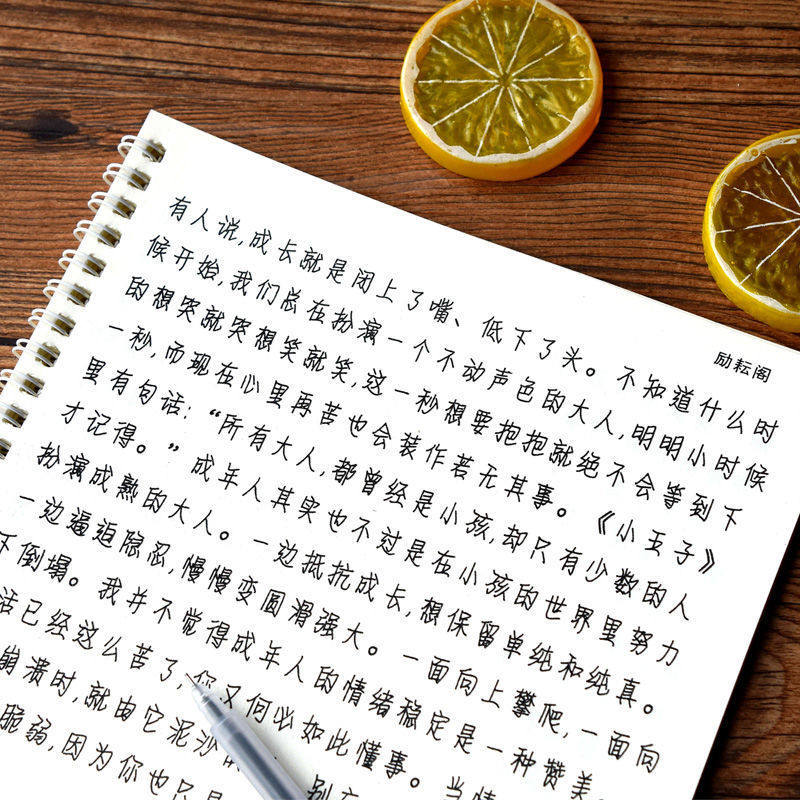 励耘阁
有人说,成长就是闭上了嘴、低下了头。不知道什么时
候开始,我们总在扮演一个不动声色的大人,明明小时候
的想突就突想笑就笑,这一秒想要抱抱就绝不会等到下
一秒,而现在心里再苦也会装作若无其事。《小王子》
里有句话:“所有大人,都曾经是小孩,却只有少数的人
才记得。”成年人其实也不过是在小孩的世界里努力
扮演成熟的大人。一边抵抗成长,想保留单纯和纯真。
一边逼迫隐忍,慢慢变圆滑强大。一面向上攀爬,一面向
下倒塌。我并不觉得成年人的情绪稳定是一种赞美
活已经这么苦了,你又何必如此懂事。当情
崩溃时,就由它泥沙 别
脆弱,因为你也只是